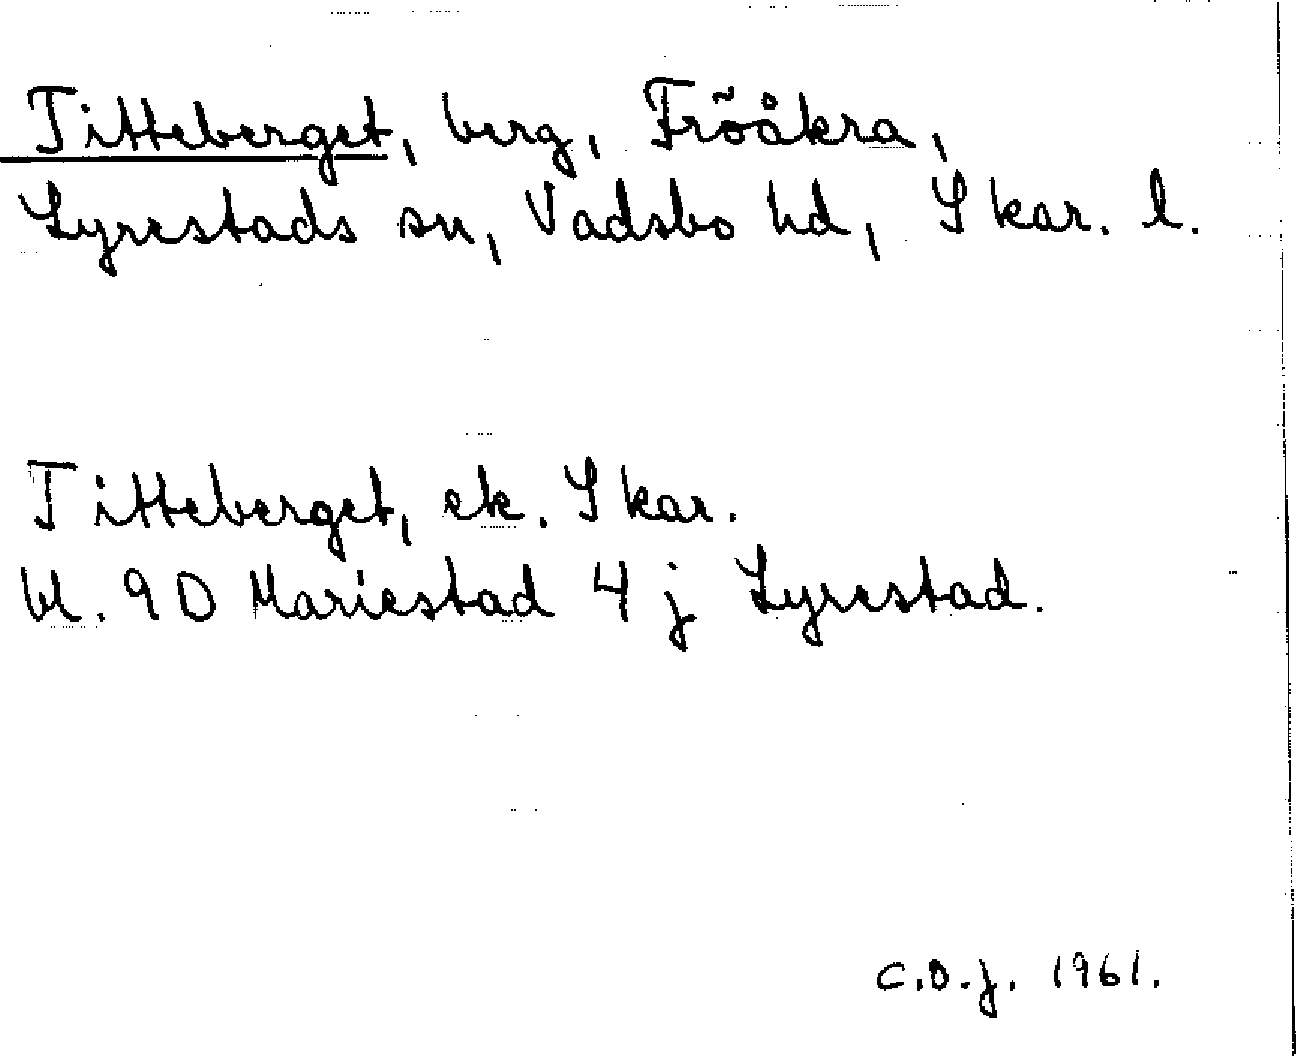 Titteberget, berg, Fröåkra,
Lyrestads sn, Vadsbo hd, Skar. l.
Titteberget, ek. Skar.
bl. 9D Mariestad 4j Lyrestad.
C.O.J. 1961.